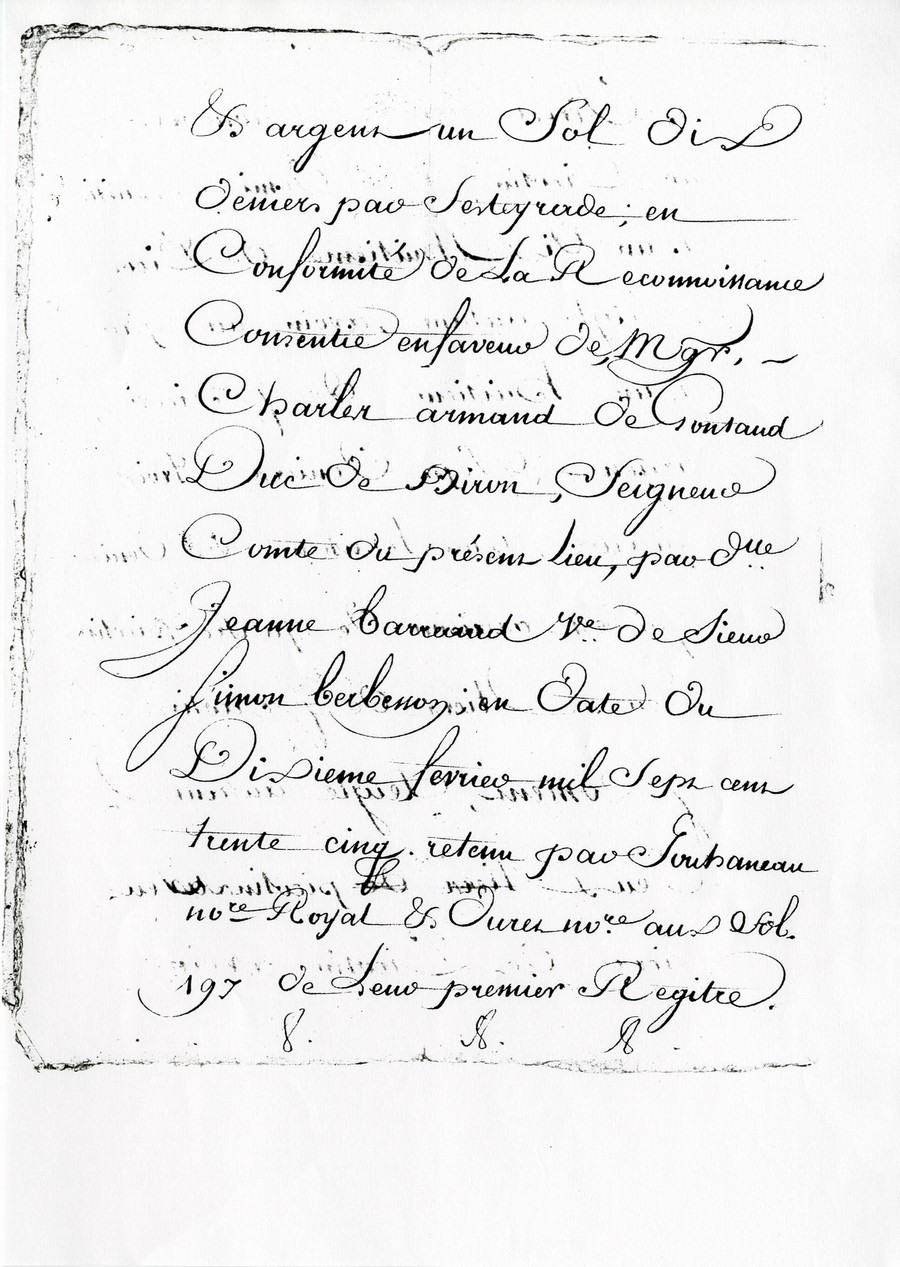 & argent un Sol dix
deniers par Sesteyrade; en
Conformité de La Reconnoissance
Consentie en faveur de Mgr.
Charles armand de Gontaud
Duc de Biron, Seigneur
Comte du présent lieu, par dlle
Jeanne barraud Ve de Sieur
Simon berbesson; en date du
Dixieme fevrier mil Sept cent
trente cinq. retenu par Souhaneau
nore Royal & Dures nore aux fol.
197 de Leur premier Regitre.